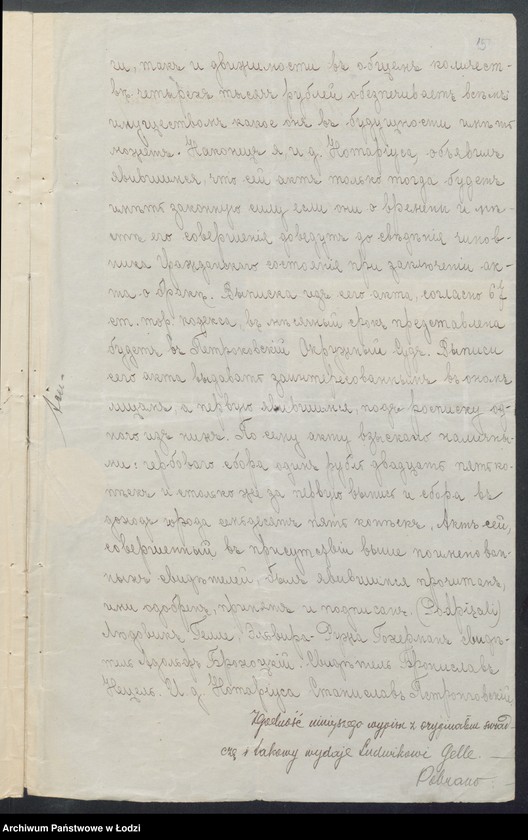 15
ги, такъ и движимости въ общемъ количест-
вѣ четырехъ тысячъ рублей обезпечиваетъ всѣмъ
имуществомъ какое онъ въ будущности имѣть
можетъ. Наконецъ я, и. д. Нотаріуса, объявилъ
явившимся, что сей актъ только тогда будетъ
имѣть законную силу если они о времени и мѣ-
стѣ его совершенія доведутъ до свѣдѣнія чинов-
ника Гражданскаго состоянія при заключеніи ак-
та о бракѣ. Выписка изъ сего акта, согласно
ст. тор. кодекса, въ мѣсячный срокъ представлена
будетъ въ Петроковскій Окружный Судъ. Выписи
сего акта выдавать заинтересованнымъ въ ономъ
лицамъ, а первую явившимся, подъ росписку од-
ного изъ нихъ. По сему акту взыскано наличны-
ми: гербоваго сбора одинъ рубль двадцать пять ко-
пѣекъ и столько же за первую выпись и сбора въ
доходъ города семьдесятъ пять копѣекъ. Актъ сей,
совершенный въ присутствіи выше поименован-
ныхъ свидѣтелей, былъ явившимся прочитанъ,
ими одобренъ, принятъ и подписанъ. (Podpisali)
Людвикъ Гелле, Эльвира-Ружа Гокерманъ. Свидѣ-
тель Адольфъ Брохоцкій. Свидѣтель Брониславъ
И. д. Нотаріуса Станиславъ Петроковскій
Zgodność niniejszego wypisu z oryginałem świad-
czę i takowy wydaję Ludwikowi Gelle.
Pobrano
Archiwum Państwowe w Łodzi